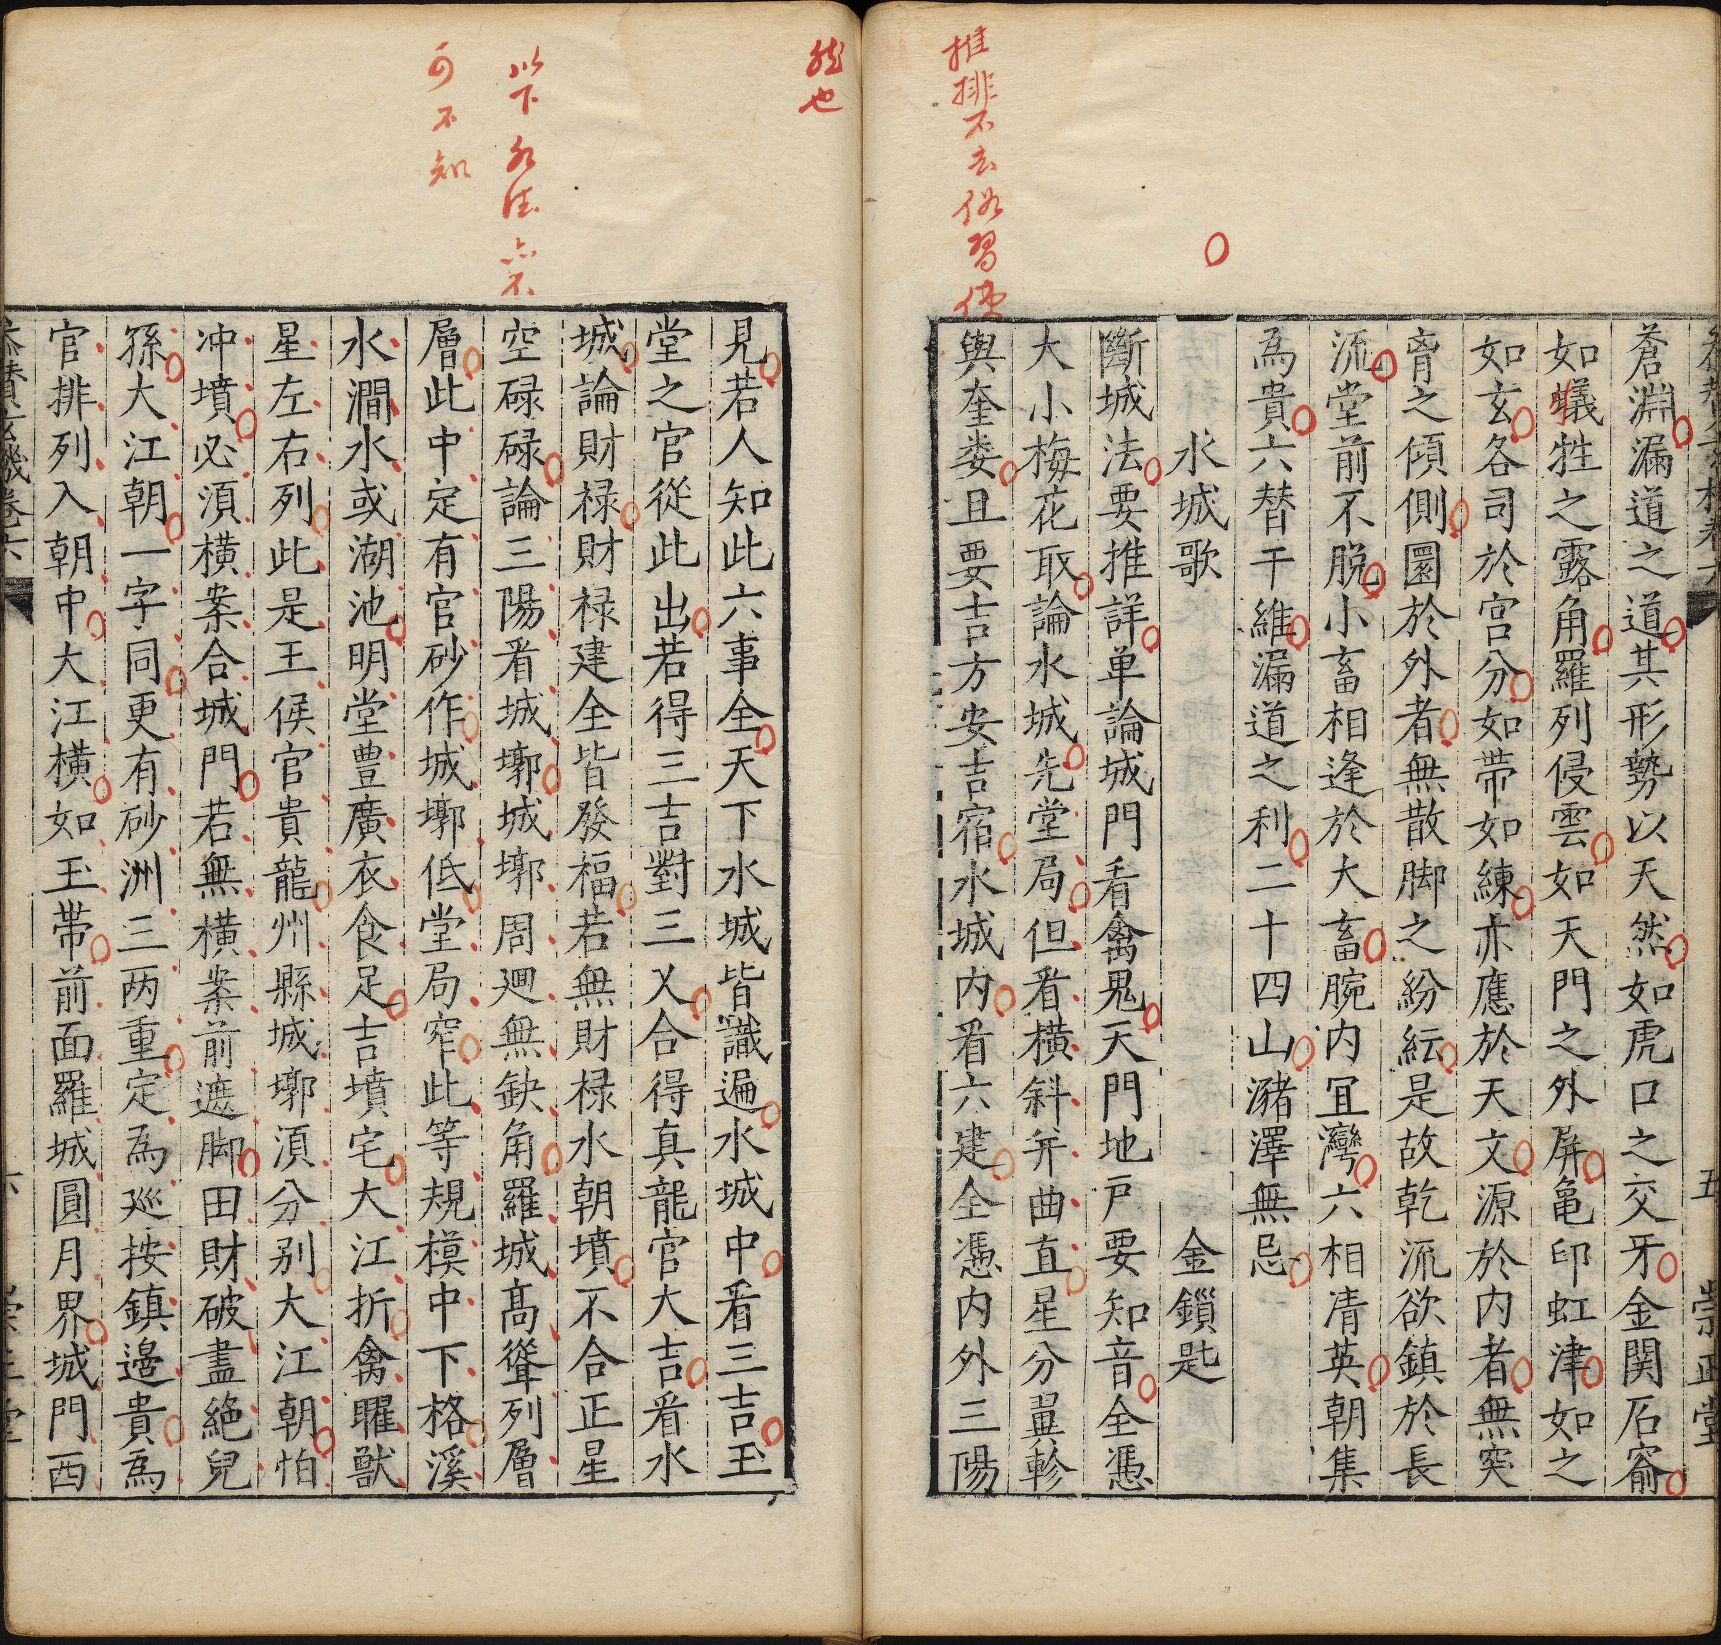 五
崇正堂
蒼淵漏道之道其形勢以天然如虎口之交牙金関石龠
如犧牲之露角羅列侵雲如天門之外屏亀印虹津如之
如玄各司於宮分如帶如練亦應於天文源於内者無突
脊之傾側圜於外者無散脚之紛紜是故乾流欲鎮於長
流堂前不脱小畜相逢於大畜腕内冝灣六相清英朝集
為貴六替干維漏道之利二十四山瀦澤無忌
水城歌　金鎖匙
斷城法要推詳单論城門看禽鬼天門地戸要知音全憑
大小梅花取論水城先堂局但看橫斜并曲直星分翼軫
與奎娄且要吉方安吉宿水城内看六建全憑内外三陽
推排不去俗習使
然也
見若人知此六事全天下水城皆識遍水城中看三吉玉
堂之官從此出若得三吉對三乂合得真龍官大吉看水
城論財禄財禄建全皆發福若無財禄水朝墳不合正星
空碌碌論三陽看城墎城墎周迴無缺角羅城髙聳列層
層此中定有官砂作城墎低堂局窄此等規模中下格溪
水澗水或湖池明堂豊廣衣食足吉墳宅大江折禽曜獣
星左右列此是王侯官貴龍州縣城墎須分别大江朝怕
冲墳必須橫案合城門若無橫案前遮脚田財破盡絶兒
孫大江朝一字同更有砂洲三两重定為廵按鎮邊貴為
官排列入朝中大江橫如玉帶前面羅城圓月界城門西
以下水法亦不
可不知
六